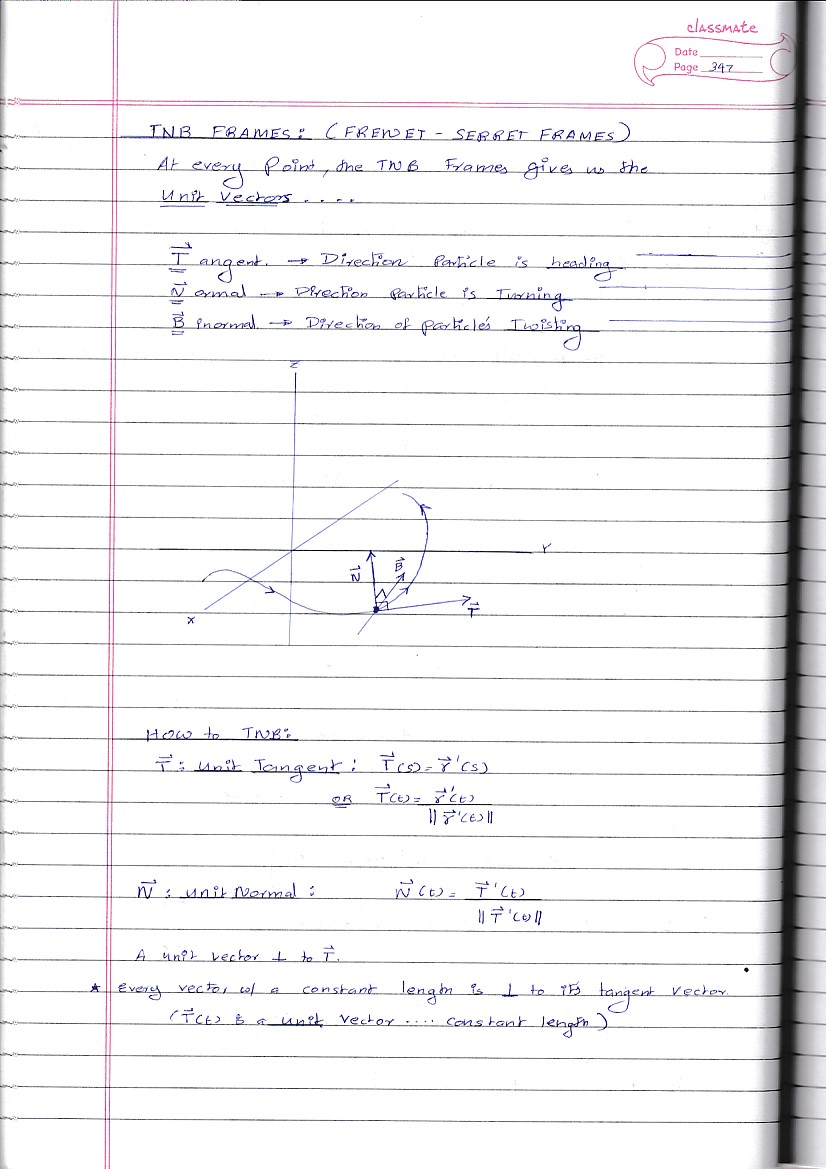 classmate
Date
Page 347
TNB FRAMES: (FRENET - SERRET FRAMES)
At every Point, the TNB Frames gives us the
Unit Vectors . . . .
T⃗ angent. → Direction Particle is heading
N⃗ ormal → Direction Particle is Turning
B⃗ inormal → Direction of particle's Twisting
Z
Y
N⃗
B⃗
T⃗
X
How to TNB:
T⃗ : Unit Tangent : T⃗(s) = r⃗'(s)
OR T⃗(t) = r⃗'(t)
||r⃗'(t)||
N⃗ : Unit Normal : N⃗(t) = T⃗'(t)
||T⃗'(t)||
A unit vector ⊥ to T⃗.
* Every vector w/ a constant length is ⊥ to its tangent vector.
(T⃗(t) is a unit vector .... constant length)